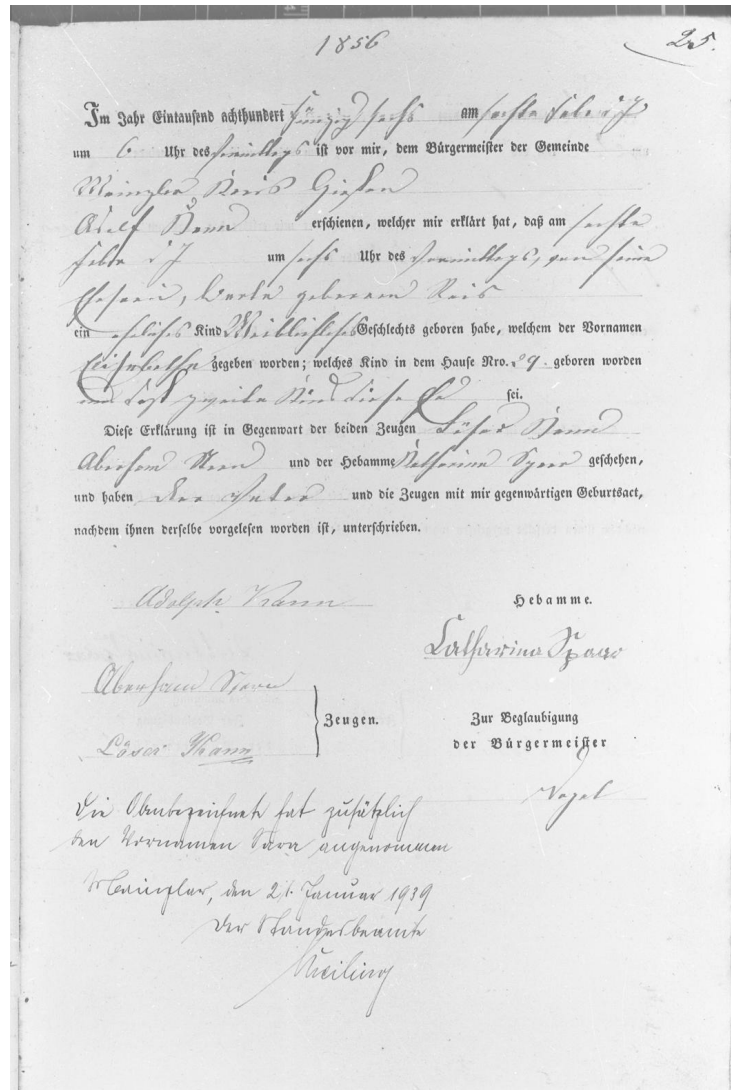 1856
25.
Im Jahr Eintausend achthundert fünfzig sechs am sechste Febr d J
um 6 Uhr des Vormittags ist vor mir, dem Bürgermeister der Gemeinde
Mainzlar Kreis Gießen
Adolf Kann erschienen, welcher mir erklärt hat, daß am sechste
Febr d J um sechs Uhr des Vormittags, von seine
Ehefrau, geborene Reis
ein eheliches Kind Weiblichles Geschlechts geboren habe, welchem der Vornamen
gegeben worden; welches Kind in dem Hause Nro. 29. geboren worden
und das zweite Kind diese Ehe sei.
Diese Erklärung ist in Gegenwart der beiden Zeugen Löser Kann
Aberham Stern und der Hebamme Katharina geschehen,
und haben der Vater und die Zeugen mit mir gegenwärtigen Geburtsact,
nachdem ihnen derselbe vorgelesen worden ist, unterschrieben.
Adolph Kann
Hebamme.
Catharina
Aberham Stern
Zeugen.
Löser Kann
Zur Beglaubigung
der Bürgermeister
Vogel
Die Obenbezeichnete hat zusätzlich
den Vornamen Sara angenommen
Mainzlar, den 21. Januar 1939
Der Standesbeamte